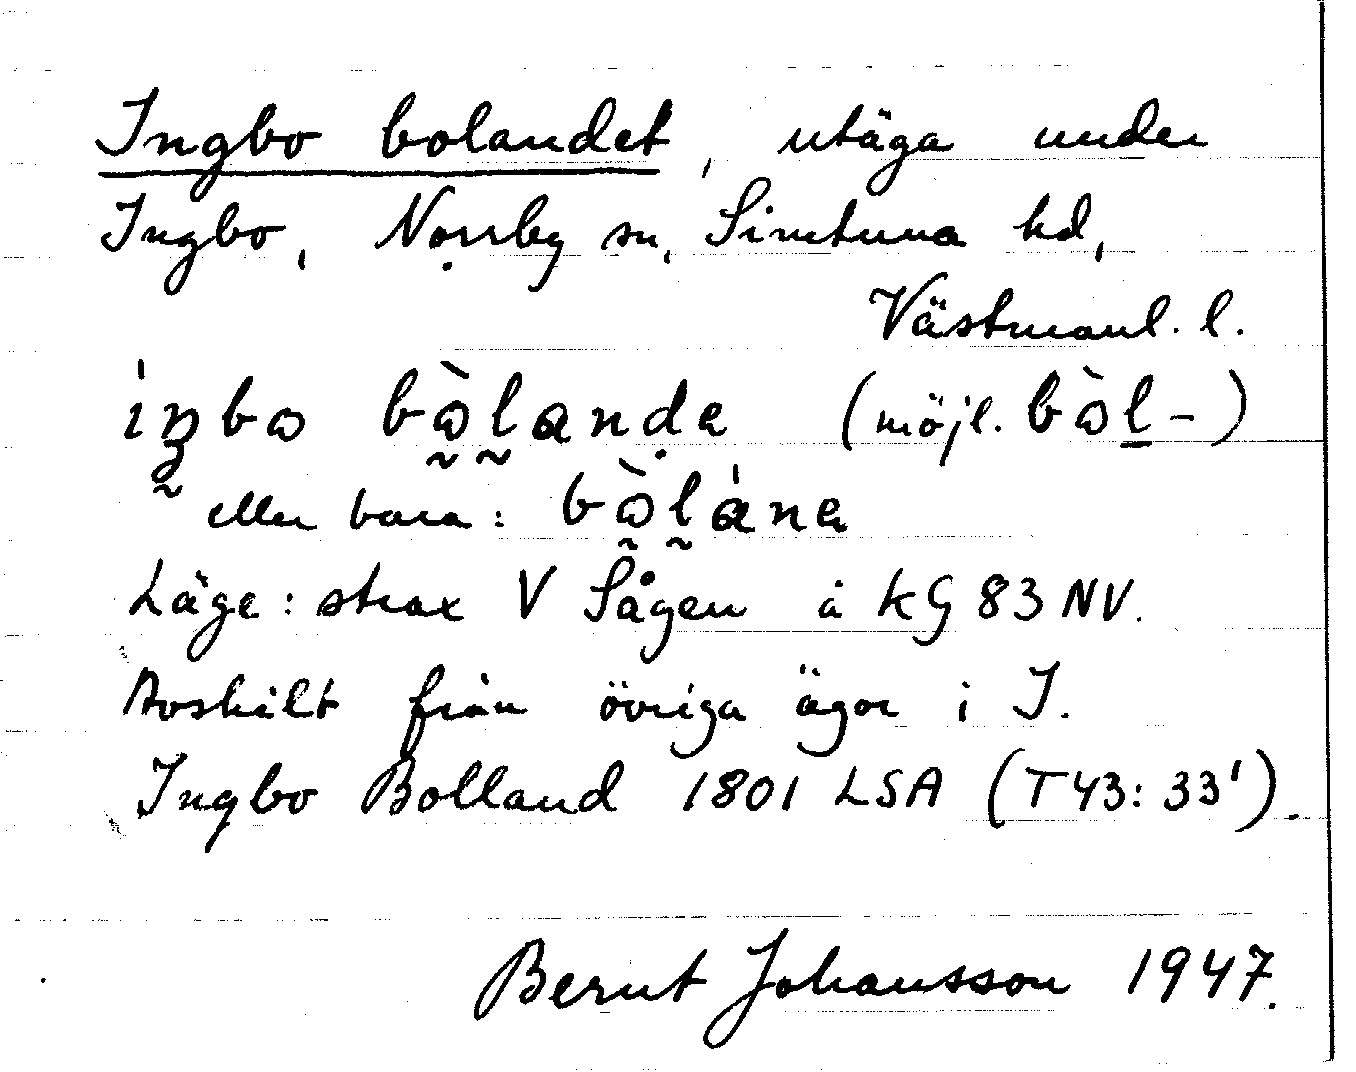 Ingbo bolandet, utäga under
Ingbo, Norrby sn, Simtuna hd,
Västmanl. l.
iŋbɷ bɷ̀landa (möjl. bɷ̀l-)
eller bara: bɷ̀lána
Läge: strax V Sågen å kG 83 NV.
Avskilt från övriga ägor i I.
Ingbo Bolland 1801 LSA (T43: 33').
Bernt Johansson 1947.